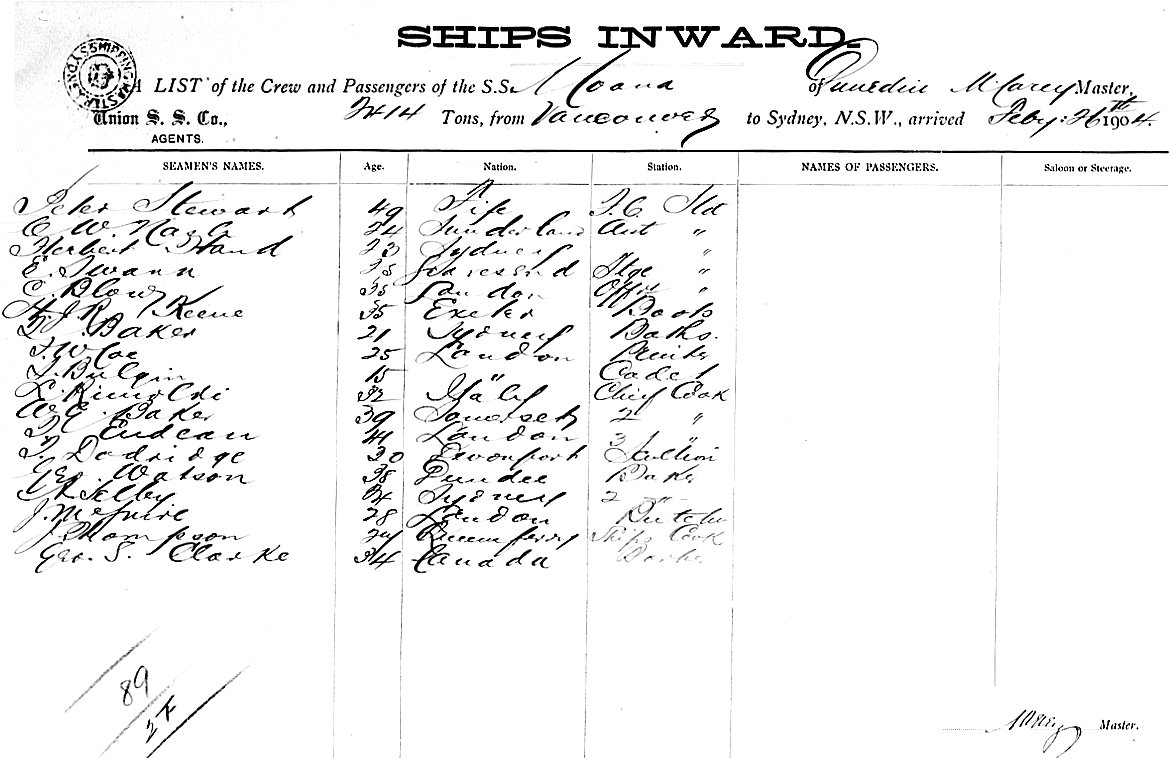 SHIPS INWARD.
SHIPPING MASTER SYDNEY
A LIST of the Crew and Passengers of the S.S. Moana of Dunedin M. Carey Master,
Union S. S. Co., 2414 Tons, from Vancouver to Sydney, N.S.W., arrived Feby: 26th 1904.
AGENTS.
SEAMEN'S NAMES. Age. Nation. Station. NAMES OF PASSENGERS. Saloon or Steerage.
Peter Stewart 49 Fife F.C. Std
E. W. Nash 24 Sunderland Asst "
Herbert Hand 23 Sydney "
E. Swann 25 Gravesend Stge "
C. Blow 35 London Offrs "
H. J. R. Keene 35 Exeter Boots
F. Baker 21 Sydney Baths.
F. W. Coe 25 London Printer
T. Bulgin 15 " Cadet
L. Rimoldi 32 Italy Chief Cook
W. E. Baker 39 Somerset 2 "
Endean 41 London 3 "
F. Dodridge 20 Devonport Scullion
Geo. Watson 38 Dundee Baker
Selby 34 Sydney 2 - " -
J. McGuire 28 London Butcher
J. Thompson 24 Queensferry Ships Cook
Geo. S. Clarke 34 Canada Barber
89
27
M Carey Master.